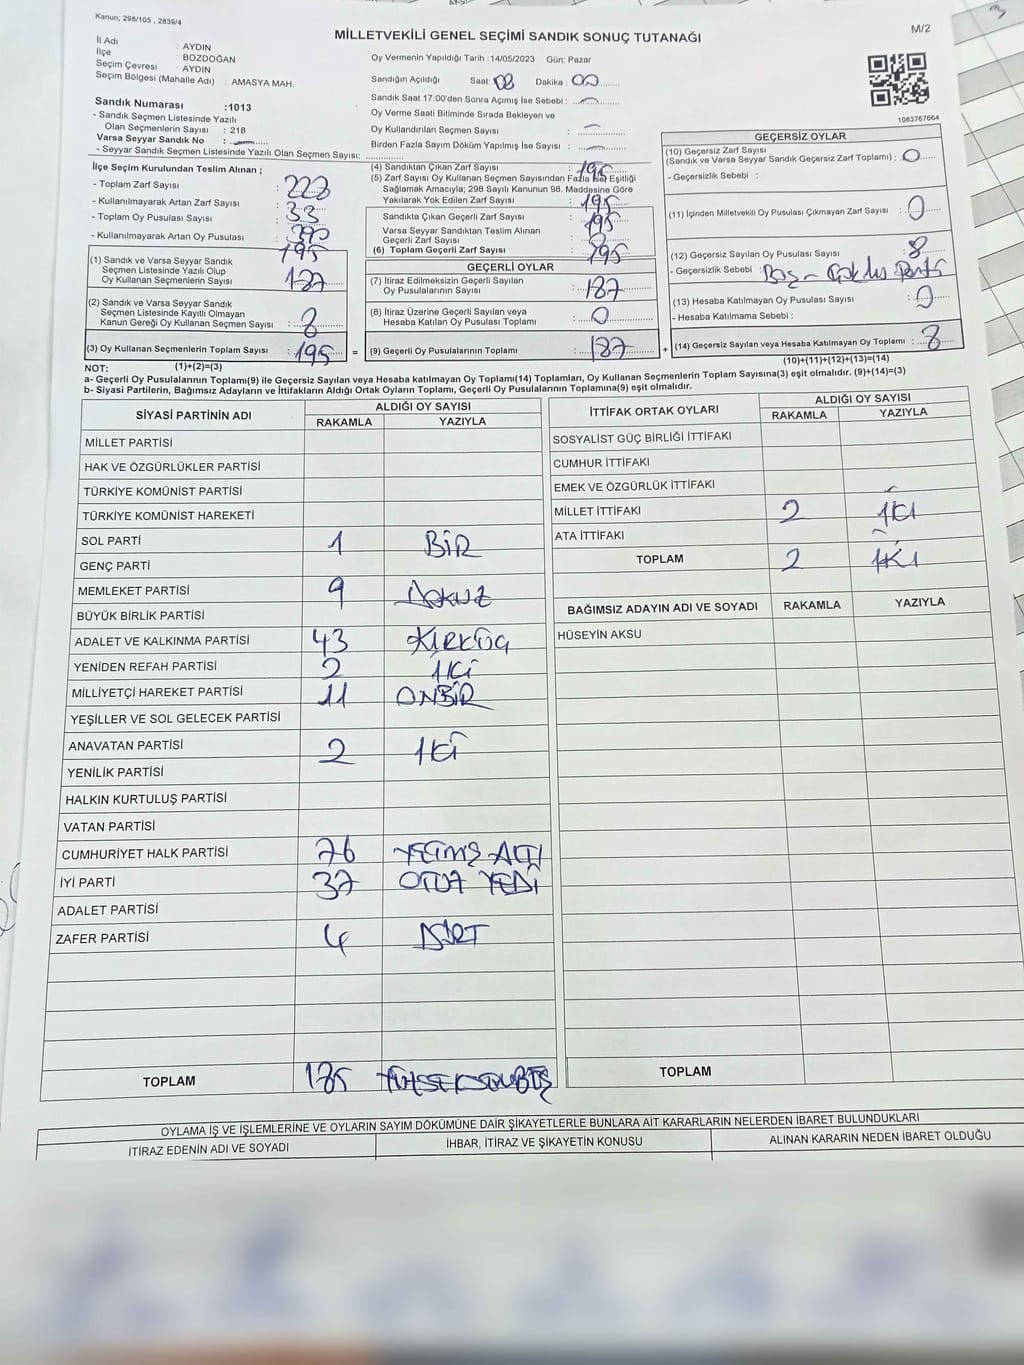 Kanun; 298/105 , 2839/4
MİLLETVEKİLİ GENEL SEÇİMİ SANDIK SONUÇ TUTANAĞI
M/2
İl Adı : AYDIN
İlçe : BOZDOĞAN
Seçim Çevresi : AYDIN
Seçim Bölgesi (Mahalle Adı) : AMASYA MAH.
Sandık Numarası :1013
- Sandık Seçmen Listesinde Yazılı
Olan Seçmenlerin Sayısı : 218
Varsa Seyyar Sandık No :
- Seyyar Sandık Seçmen Listesinde Yazılı Olan Seçmen Sayısı:
Oy Vermenin Yapıldığı Tarih :14/05/2023 Gün: Pazar
Sandığın Açıldığı Saat: 08 Dakika : 00
Sandık Saat 17:00'den Sonra Açımış İse Sebebi :
Oy Verme Saati Bitiminde Sırada Bekleyen ve
Oy Kullandırılan Seçmen Sayısı :
Birden Fazla Sayım Döküm Yapılmış İse Sayısı :
1083767664
İlçe Seçim Kurulundan Teslim Alınan ;
- Toplam Zarf Sayısı : 228
- Kullanılmayarak Artan Zarf Sayısı : 33
- Toplam Oy Pusulası Sayısı : 390
- Kullanılmayarak Artan Oy Pusulası : 195
(1) Sandık ve Varsa Seyyar Sandık
Seçmen Listesinde Yazılı Olup
Oy Kullanan Seçmenlerin Sayısı : 187
(2) Sandık ve Varsa Seyyar Sandık
Seçmen Listesinde Kayıtlı Olmayan
Kanun Gereği Oy Kullanan Seçmen Sayısı : 8
(3) Oy Kullanan Seçmenlerin Toplam Sayısı : 195 =
(4) Sandıktan Çıkan Zarf Sayısı : 195
(5) Zarf Sayısı Oy Kullanan Seçmen Sayısından Fazla İse, Eşitliği
Sağlamak Amacıyla; 298 Sayılı Kanunun 98. Maddesine Göre
Yakılarak Yok Edilen Zarf Sayısı : 195
Sandıkta Çıkan Geçerli Zarf Sayısı : 195
Varsa Seyyar Sandıktan Teslim Alınan
Geçerli Zarf Sayısı : 0
(6) Toplam Geçerli Zarf Sayısı : 195
GEÇERLİ OYLAR
(7) İtiraz Edilmeksizin Geçerli Sayılan
Oy Pusulalarının Sayısı : 187
(8) İtiraz Üzerine Geçerli Sayılan veya
Hesaba Katılan Oy Pusulası Toplamı : 0
(9) Geçerli Oy Pusulalarının Toplamı : 187 +
GEÇERSİZ OYLAR
(10) Geçersiz Zarf Sayısı
(Sandık ve Varsa Seyyar Sandık Geçersiz Zarf Toplamı) : 0
- Geçersizlik Sebebi :
(11) İçinden Milletvekili Oy Pusulası Çıkmayan Zarf Sayısı : 0
(12) Geçersiz Sayılan Oy Pusulası Sayısı : 8
- Geçersizlik Sebebi : Boş -
(13) Hesaba Katılmayan Oy Pusulası Sayısı : 0
- Hesaba Katılmama Sebebi :
(14) Geçersiz Sayılan veya Hesaba Katılmayan Oy Toplamı : 8
NOT: (1)+(2)=(3)
(10)+(11)+(12)+(13)=(14)
a- Geçerli Oy Pusulalarının Toplamı(9) ile Geçersiz Sayılan veya Hesaba katılmayan Oy Toplamı(14) Toplamları, Oy Kullanan Seçmenlerin Toplam Sayısına(3) eşit olmalıdır. (9)+(14)=(3)
b- Siyasi Partilerin, Bağımsız Adayların ve İttifakların Aldığı Ortak Oyların Toplamı, Geçerli Oy Pusulalarının Toplamına(9) eşit olmalıdır.
SİYASİ PARTİNİN ADI ALDIĞI OY SAYISI
RAKAMLA YAZIYLA
MİLLET PARTİSİ
HAK VE ÖZGÜRLÜKLER PARTİSİ
TÜRKİYE KOMÜNİST PARTİSİ
TÜRKİYE KOMÜNİST HAREKETİ
SOL PARTİ 1 BİR
GENÇ PARTİ
MEMLEKET PARTİSİ 9 DOKUZ
BÜYÜK BİRLİK PARTİSİ
ADALET VE KALKINMA PARTİSİ 43 KIRKÜÇ
YENİDEN REFAH PARTİSİ 2 İKİ
MİLLİYETÇİ HAREKET PARTİSİ 11 ONBİR
YEŞİLLER VE SOL GELECEK PARTİSİ
ANAVATAN PARTİSİ 2 İKİ
YENİLİK PARTİSİ
HALKIN KURTULUŞ PARTİSİ
VATAN PARTİSİ
CUMHURİYET HALK PARTİSİ 76 YETMİŞ ALTI
İYİ PARTİ 37 OTUZ YEDİ
ADALET PARTİSİ
ZAFER PARTİSİ 4 DÖRT
TOPLAM 185 YÜZSEKSENBEŞ
İTTİFAK ORTAK OYLARI ALDIĞI OY SAYISI
RAKAMLA YAZIYLA
SOSYALİST GÜÇ BİRLİĞİ İTTİFAKI
CUMHUR İTTİFAKI
EMEK VE ÖZGÜRLÜK İTTİFAKI
MİLLET İTTİFAKI 2 İKİ
ATA İTTİFAKI
TOPLAM 2 İKİ
BAĞIMSIZ ADAYIN ADI VE SOYADI RAKAMLA YAZIYLA
HÜSEYİN AKSU
TOPLAM
OYLAMA İŞ VE İŞLEMLERİNE VE OYLARIN SAYIM DÖKÜMÜNE DAİR ŞİKAYETLERLE BUNLARA AİT KARARLARIN NELERDEN İBARET BULUNDUKLARI
İTİRAZ EDENİN ADI VE SOYADI İHBAR, İTİRAZ VE ŞİKAYETİN KONUSU ALINAN KARARIN NEDEN İBARET OLDUĞU